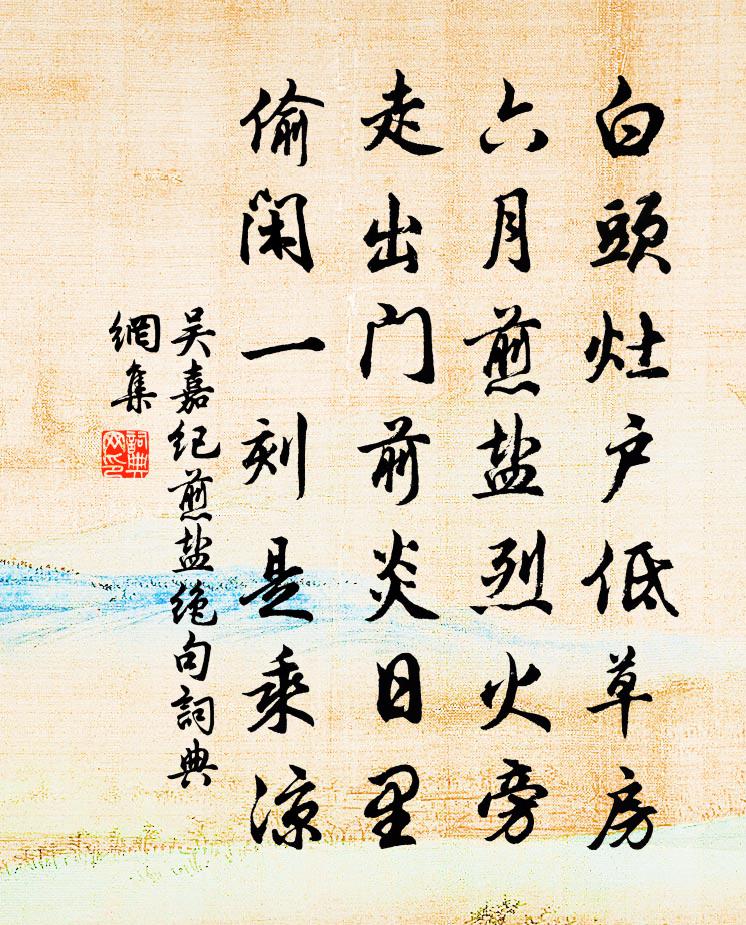 白頭灶户低草房
六月煎盐烈火旁
走出门前炎日里
偷闲一刻是乘凉
吴嘉纪煎盐绝句詞典
網集
詞典
网印